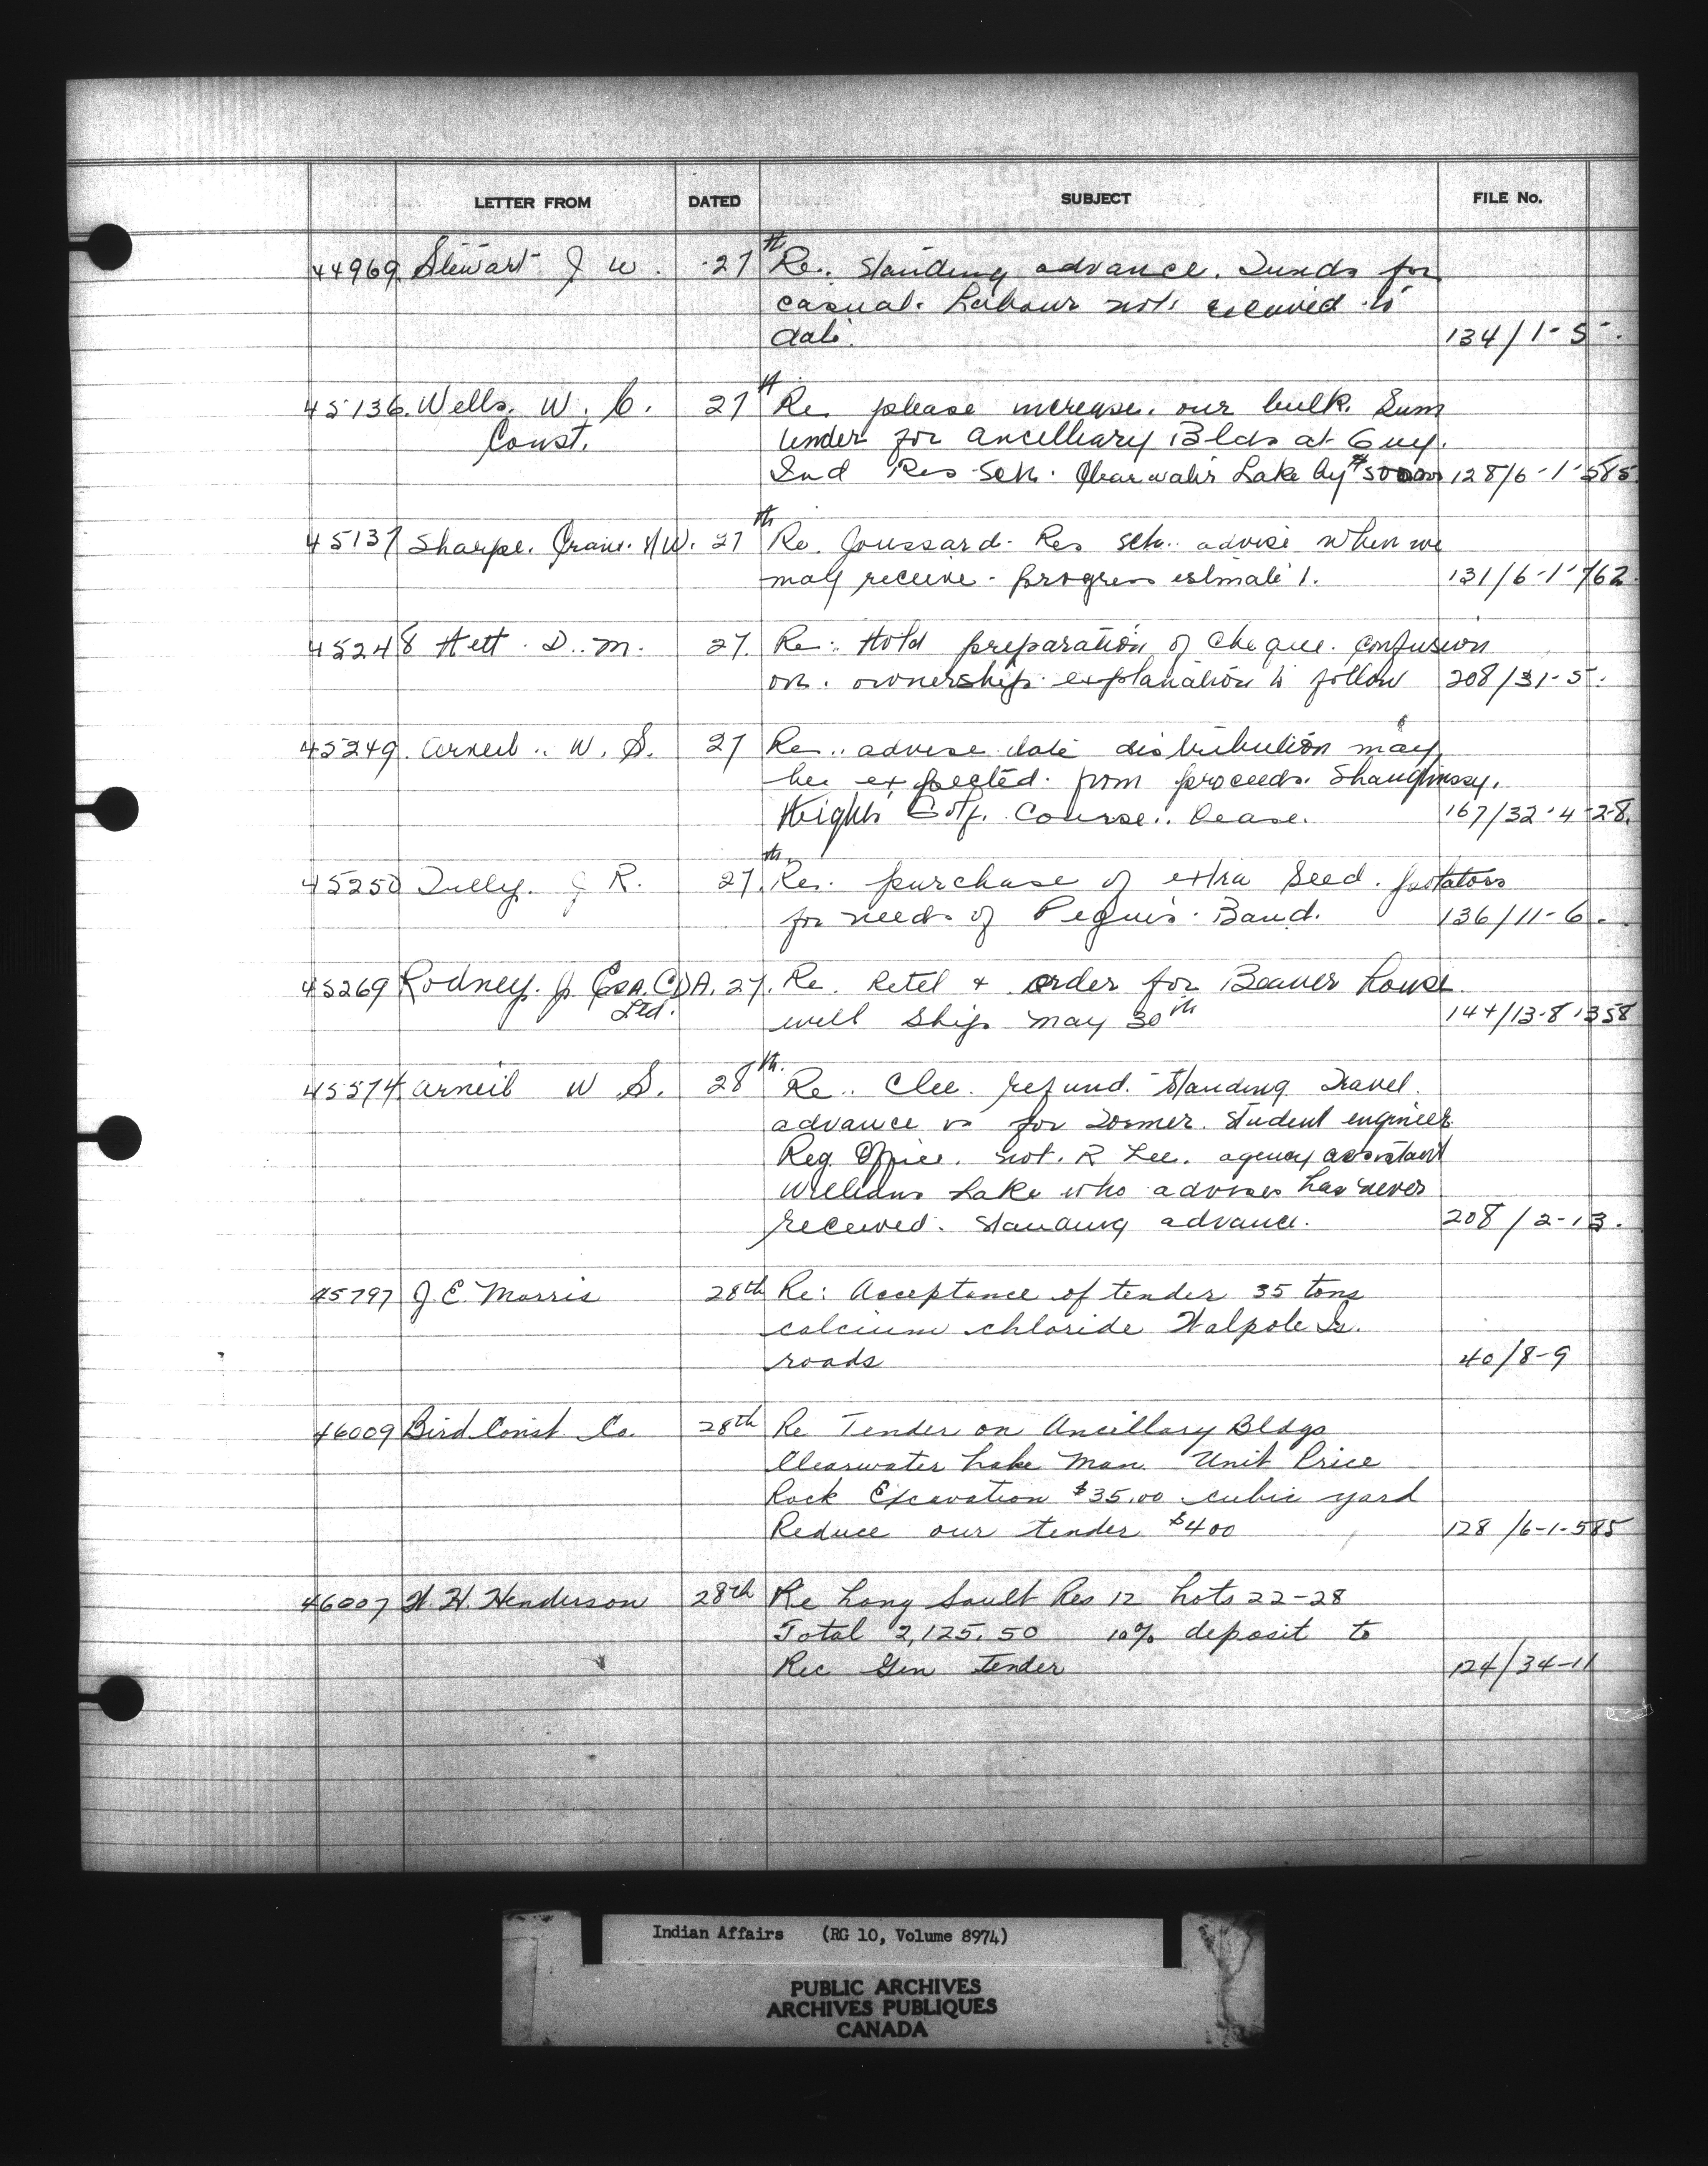 LETTER FROM DATED SUBJECT FILE No.
44969. Stewart J W. 27th Re. Standing advance. Funds for
casual. Labour not received to
date. 134/1-5-.
45136. Wells. W. C. 27th Re. please increase. our bulk. Sum
Const. tender for ancelleary Blds at Guy.
Ind Res. Sch. Clearwater Lake by $50000 128/6-1-585
45137 Sharpe. W. 27th Re. Joussard. Res Sch. advise when we
may receive. progress estimate 1. 131/6-1-762.
45248 Hett. D. M. 27. Re. Hold preparation of cheque. confusion
on. ownership. explanation to follow 208/31-5.
45249. Arneil.. W. S. 27 Re.. advise date distribution may
be expected. from proceeds. Shaughnessy.
Heights Golf. Course.. Lease. 167/32-4-28.
45250 Tully. J R. 27th. Re. purchase of extra Seed. potatoes
for needs of Peguis. Band. 136/11-6.
45269 Rodney. J. CDA. 27. Re. Retel & order for Beaver house.
Ltd. will ship May 30th 144/13-8-1358
45574 Arneil W S. 28th. Re.. Clee. refund. Standing Travel.
advance is for former. Student engineer
Reg. Office. not. R Lee. agency assistant
Williams Lake who advises has never
received. standing advance. 208/2-13.
45797 J. E. Morris 28th Re: Acceptance of tender 35 tons
calcium chloride Walpole Is.
roads 40/8-9
46009 Bird Const Co. 28th Re Tender on Ancillary Bldgs
Clearwater Lake Man. Unit Price
Rock Excavation $35.00 cubic yard
Reduce our tender $400 128/6-1-585
46007 H. Henderson 28th Re Long Sault Res 12 Lots 22-28
Total 2,125.50 10% deposit to
Rec Gen tender 124/34-11
Indian Affairs (RG 10, Volume 8974)
PUBLIC ARCHIVES
ARCHIVES PUBLIQUES
CANADA